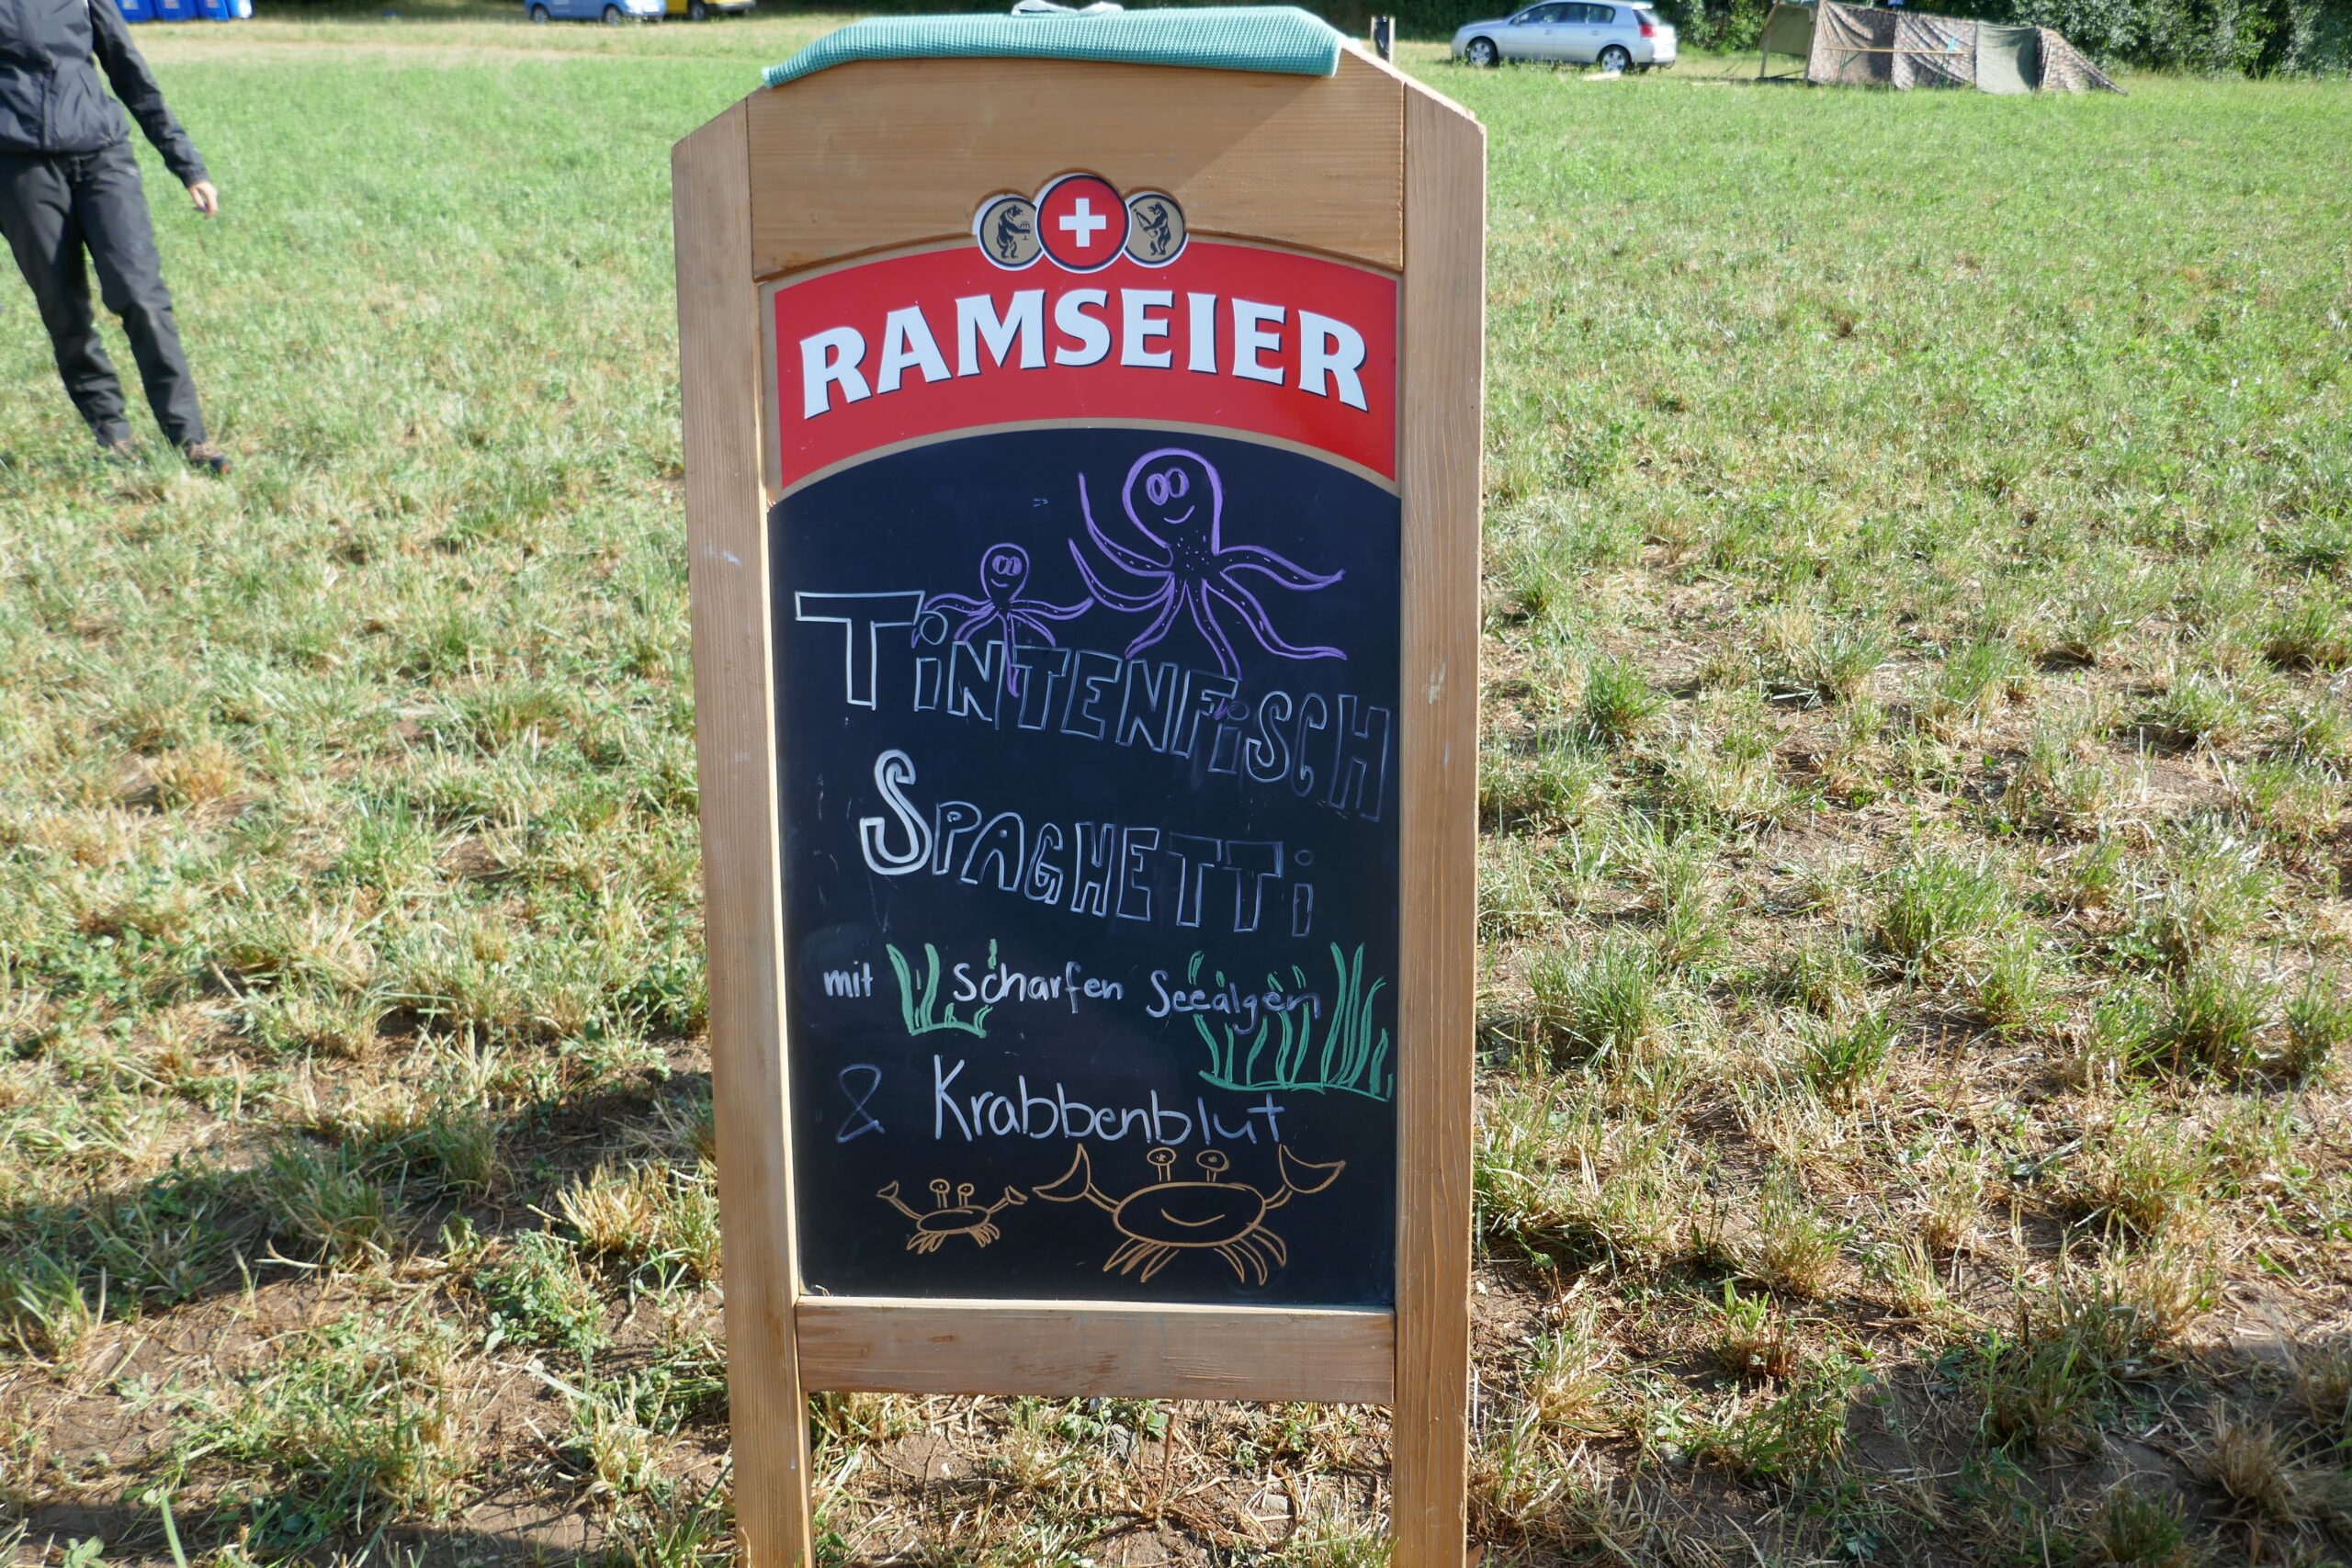 RAMSEIER
TiNTENFiSCH
SPAGHETTi
mit scharfen Seealgen
& Krabbenblut